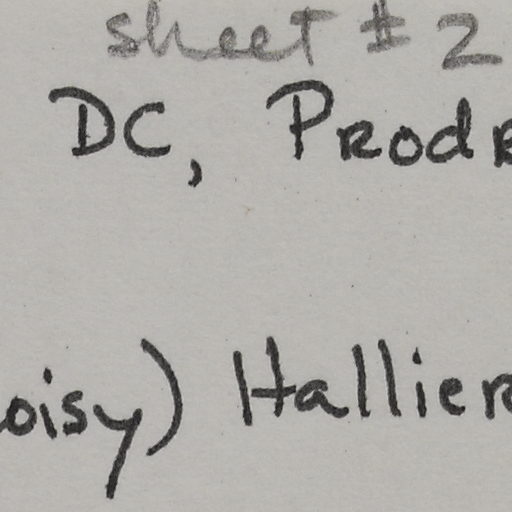 sheet # 2
DC, Prodr
oisy) Hallier